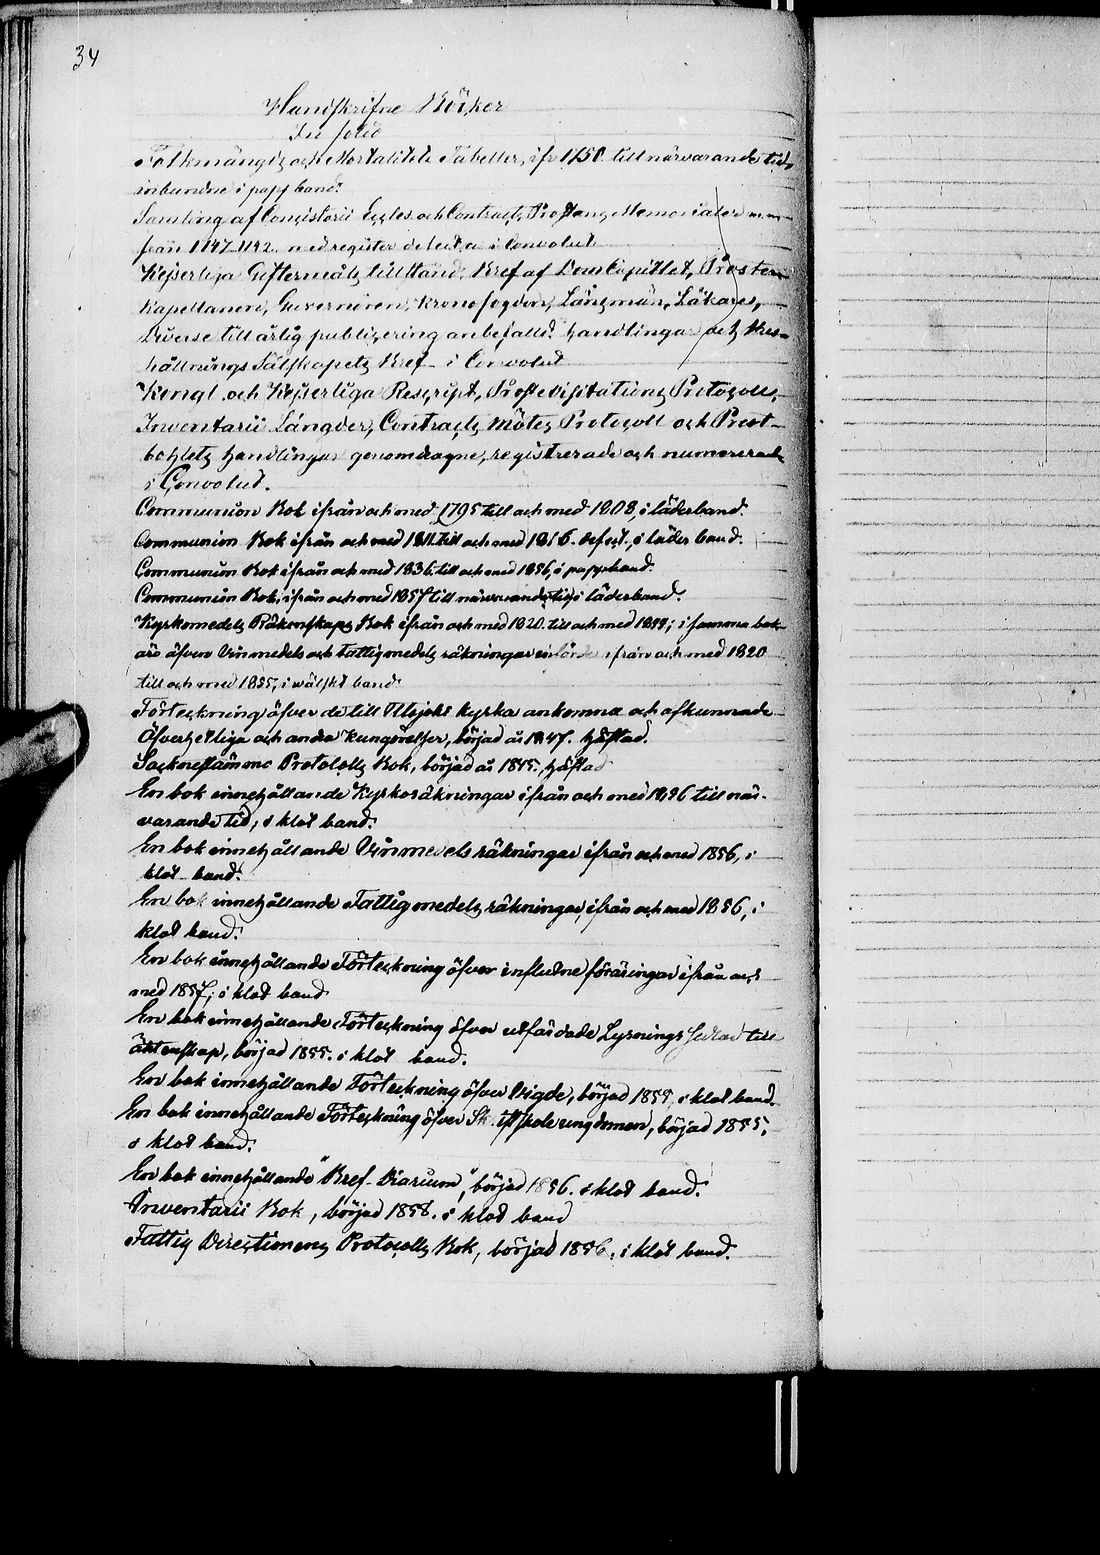 34
Handskrifne Böcker
In folio
Folkmängds och Mortalitets Tabeller, ifr 1750 till närvarande tid,
inbundne i papp band.
Samling af Consistorii Eccles. och Contracts Prostens Memorialer m.m.
från 1747 med register defecta i Convolut
Kejserliga Giftermåls tillstånd, Bref af DomCapitlet, Proster,
Kapellaner, Guvernören, Kronofogden, Länsmän, Läkare,
Diverse till årlig publicering anbefalld. handlingar och Hus-
hållnings Sälskapets Bref i Convolut
Kongl. och Kejserliga Rescript, Prostevisitations Protocoll,
Inventarii Längder, Contracts Mötes Protocoll och Prest-
bohlets handlingar genomdragne, registrerade och numererade
i Convolut.
Communion Bok ifrån och med 1795 till och med 1808, i läderband.
Communion Bok ifrån och med 1811 till och med 1816. defect, i läder band.
Communion Bok ifrån och med 1836. till och med 1856, i pappband.
Communion Bok, ifrån och med 1857 till närvarande tid i läderband.
Kyrkomedels Räkenskaps Bok ifrån och med 1820. till och med 1855; i samma bok
äro äfven Vinmedels och Fattigmedels räkningar införde ifrån och med 1820
till och med 1855, i wälskt band.
Förteckning öfver de till kyrka ankomna och afkunnade
Öfverhetliga och andra Kungörelser, börjad år 1847. häftad.
Socknestämmo Protocolls Bok, börjad år 1845. häftad
En bok innehållande Kyrkoräkningar ifrån och med 1856 till när-
varande tid, i klot band.
En bok innehållande Vinmedels räkningar ifrån och med 1856, i
klot band.
En bok innehållande Fattigmedels räkningar, ifrån och med 1856, i
klot band.
En bok innehållande Förteckning öfver influtne föräringar ifrån och
med 1857, i klot band
En bok innehållande Förteckning öfver utfärdade Lysnings Sedlar till
äktenskap, börjad 1855. i klot band.
En bok innehållande Förteckning öfver Vigde, börjad 1855 i klot band.
En bok innehållande Förteckning öfver skole ungdomen, börjad 1855,
i klot band.
En bok innehållande "Bref-Diarium," börjad 1856. i klot band.
Inventarii Bok, börjad 1858. i klot band
Fattig Directionens Protocolls Bok, börjad 1856, i klot band.